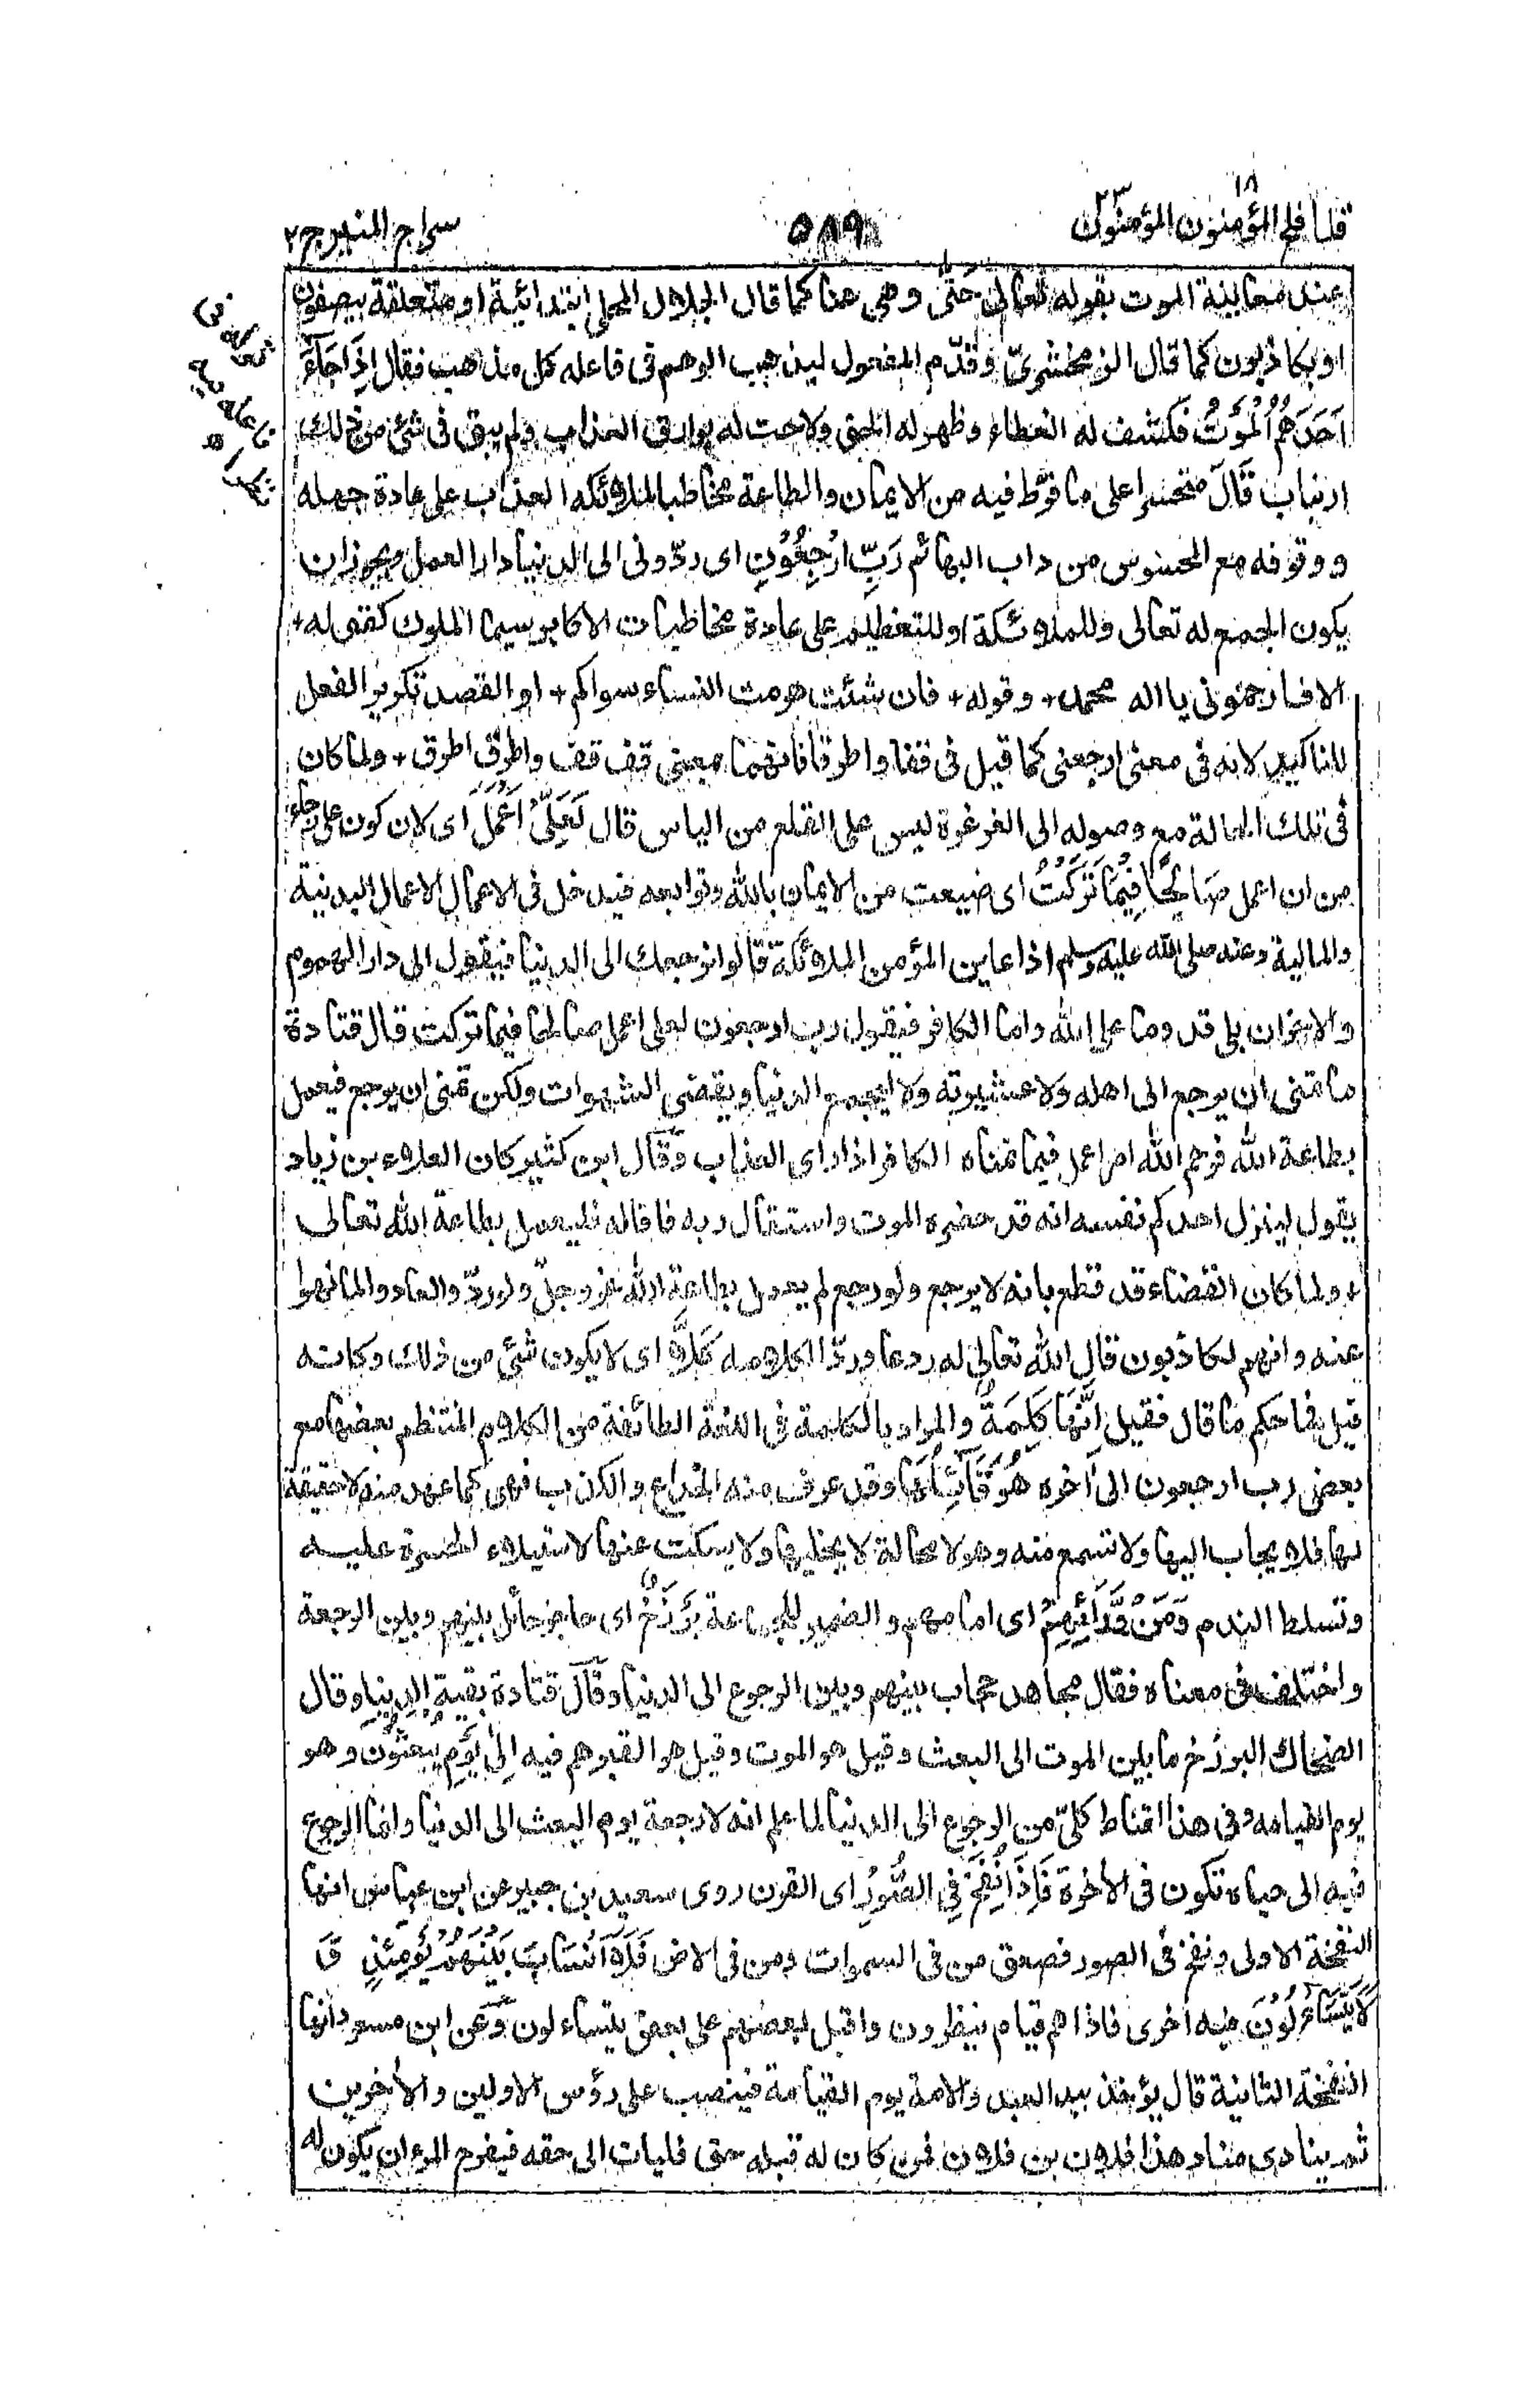 قد افلح المؤمنون المؤمنون
١٨
٢٣
٥٨٩
سراج المنير ج ٢
عند معاينة الموت بقوله تعالى حَتّٰى وهى هنا كما قال الجلال المحلى ابتدائية او متعلقة بيصفون
او بكاذبون كما قال الزمخشرىّ وقدّم المفعول ليذهب الوهم فى فاعله كل مذاهب فقال اِذَا جَآءَ
اَحَدَهُمُ الْمَوْتُ فكشف له الغطاء وظهر له الحق ولاحت له بوارق العذاب ولم يبق فى شئ من ذلك
ارتياب قَالَ متحسرا على ما فرّط فيه من الايمان والطاعة مخاطبا لملائكه العذاب على عادة جهله
ووقوفه مع المحسوس من داب البهائم رَبِّ ارْجِعُوْنِ اى ردّونى الى الدنيا دار العمل ويجوز ان
يكون الجمع له تعالى وللملائكة او للتعظيم على عادة مخاطبات الاكابر سيما الملوك كقوله +
الا فارحمونى يا اله محمد + وقوله + فان شئت حرمت النساء سواكم + او القصد تكرير الفعل
للتاكيد لانه فى معنى ارجعنى كما قيل فى قفا واطرقا فانهما بمعنى قف قف واطرق اطرق + ولما كان
فى تلك الحالة مع وصوله الى الغرغرة ليس على القطع من الياس قال لَعَلِّىْ اَعْمَلُ اى لان كون على رجاء
من ان اعمل صَالِحًا فِيْمَا تَرَكْتُ اى ضيعت من الايمان بالله وتوابعه فيدخل فى الاعمال الاعمال البدنية
والمالية وعنه صلى الله عليه وسلم اذا عاين المؤمن الملائكة قالوا نرجعك الى الدنيا فيقول الى دار الهموم
والاحزان بلى قدوما على الله واما الكافر فيقول رب ارجعون لعلى اعمل صالحا فيما تركت قال قتادة
ما تمنى ان يرجع الى اهله ولا عشيرته ولا ليجمع الدنيا ويقضى الشهوات ولكن تمنى ان يرجع فيعمل
بطاعة الله فرحم الله امرا عمل فيما تمناه الكافر اذا راى العذاب وقال ابن كثير كان العلاء بن زياد
يقول لينزل احدكم نفسه انه قد حضره الموت واستقال ربه فاقاله فليعمل بطاعة الله تعالى
+ ولما كان القضاء قد قطع بانه لا يرجع ولو رجع لم يعمل بطاعة الله عز وجلّ ولو ردّوا لعادوا لما نهوا
عنه وانهم لكاذبون قال الله تعالى له ردعا وردّا لكلامه كَلَّا اى لا يكون شئ من ذلك وكانه
قيل فما حكم ما قال فقيل اِنَّهَا كَلِمَةٌ والمراد بالكلمة فى اللغة الطائفة من الكلام المنتظم بعضها مع
بعض رب ارجعون الى آخره هُوَ قَآئِلُهَا وقد عرف منه الخداع والكذب فهى كما عهد منه لا حقيقة
لها فلا يجاب اليها ولا تسمع منه وهو لا محالة لا يخليها ولا يسكت عنها لاستيلاء الحسرة عليه
وتسلط الندم وَمِنْ وَّرَآئِهِمْ اى امامهم والضمير للجماعة بَرْزَخٌ اى حاجز حائل بينهم وبين الرجعة
واختلف فى معناه فقال مجاهد حجاب بينهم وبين الرجوع الى الدنيا وقال قتادة بقية الدنيا وقال
الضحاك البرزخ ما بين الموت الى البعث وقيل هو الموت وقيل هو القبر هم فيه اِلٰى يَوْمِ يُبْعَثُوْنَ وهو
يوم القيامه وفى هذا اقناط كلىّ من الرجوع الى الدنيا لما علم انه لا رجعة يوم البعث الى الدنيا وانما الرجوع
فيه الى حياة تكون فى الآخرة فَاِذَا نُفِخَ فِى الصُّوْرِ اى القرن روى سعيد بن جبير عن ابن عباس انها
النفخة الاولى ونفخ فى الصور فصعق من فى السموات ومن فى الارض فَلَآ اَنْسَابَ بَيْنَهُمْ يَوْمَئِذٍ وَّ
لَا يَتَسَآءَلُوْنَ فيه اخرى فاذا هم قيام ينظرون واقبل بعضهم على بعض يتساءلون وعن ابن مسعود انها
النفخة الثانية قال يؤخذ بيد العبد والامة يوم القيامة فينصب على رؤس الاولين والآخرين
ثم ينادى مناد هذا فلان بن فلان فمن كان له قبله حق فليات الى حقه فيفرح المرء ان يكون له